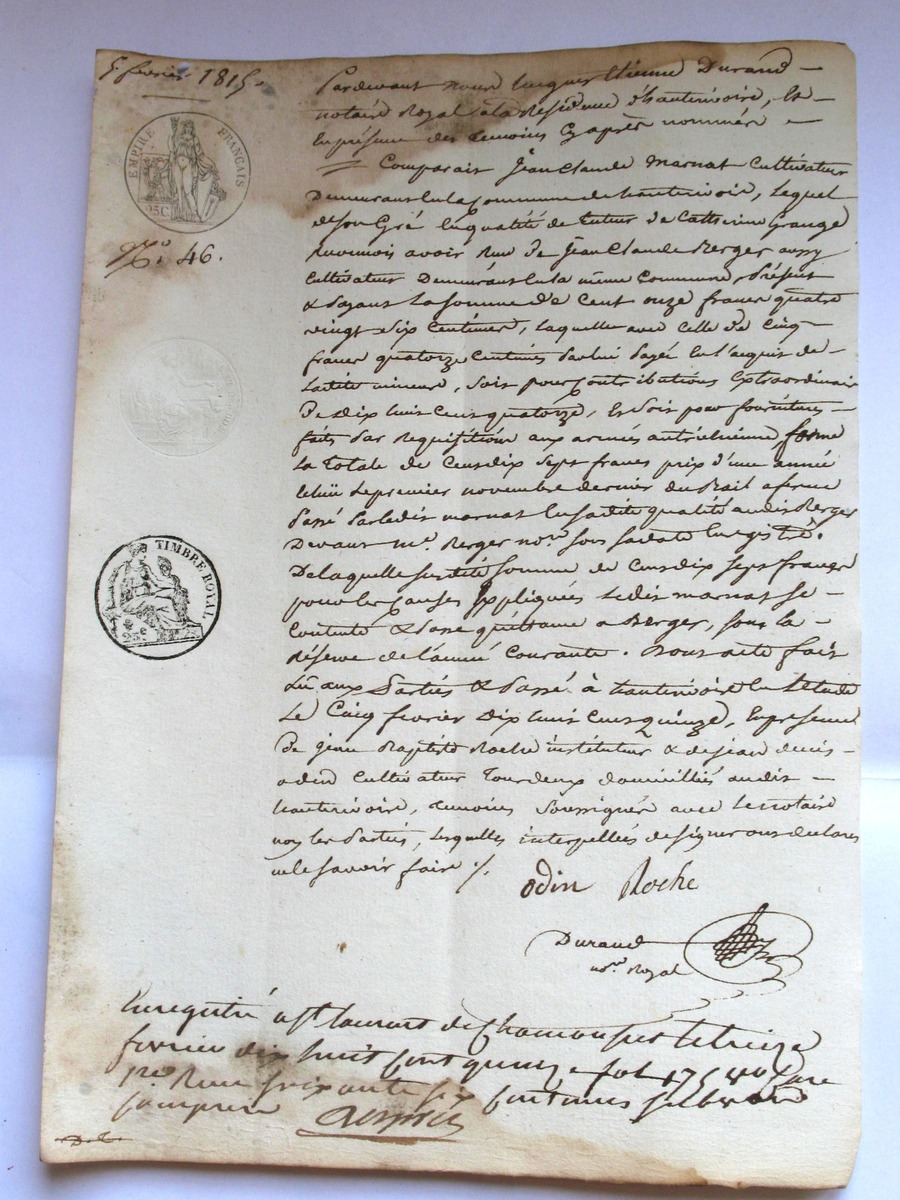 5. fevrier 1815.
EMPIRE FRANÇAIS
25C
N.º 46.
TIMBRE ROYAL
25c
Pardevant nous Jacques Etienne Durand
notaire Royal à la Residence d'hauterivoire, Et
En présence des temoins Cy après nommés
Comparait Jean Claude marnat Cultivateur
Demeurant En la Commune de hauterivoire, Lequel
de son Gré En qualité de tuteur de Catherine Grange
Reconnois avoir Reçu de Jean Claude Berger aussy
Cultivateur Demeurant En la même Commune, Présent
& payant La somme de Cent onze francs quatre
vingt six Centimes, Laquelle avec Celle de Cinq
francs quatorze Centimes par lui payée En l'acquit de
Ladite mineure, soit pour Contributions Extraordinaires
De dix huit Cent quatorze, Et soit pour fournitures
faites par Requisition aux armées autrichienne, forme
La totale de Cent dix sept francs prix d'une année
Echüe Le premier novembre dernier du Bail a ferme
Passé Par ledit marnat En sadite qualité audit Berger
Devant m.e Berger no.re sous sadate Enregistré.
De laquelle susdite somme de Cent dix sept francs
pour les Causes Expliquées Ledit marnat se
Contente & passe quittance a Berger, sous la
Réserve de l'année Courante. Dont acte fait
Lu aux Parties & passé à hauterivoire En L'étude
Le Cinq fevrier dix huit Cent quinze, En presence
De jean Baptiste Roche instituteur & de jean denis
odin Cultivateur Tous deux domiciliés audit
hauterivoire, temoins soussignés avec Le notaire
non les Parties, Lesquelles interpellées de signer ont declaré
ne le savoir faire ./.
odin Roche
Durand
no.re Royal
Enregistré a St Laurent de Chamousset le treize
fevrier dix huit cent quinze fol. 175
Reçu soixante six centimes
compris